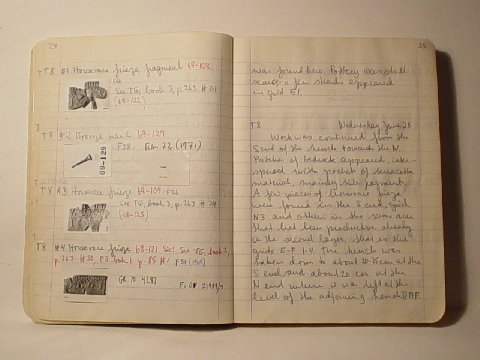 24
T8 #1 Horserace frieze fragment 69-108
in
See T6, book 3, p.263 #31
(68-122)
T8 #2 Bronze nail 69-129
F28.
(1971)
69-129
T4 #3 Horserace frieze 69-109
book 3, p.263 # 34
(68-125)
T8 #4 Horserace frieze 68-121 See T6, book 3,
p.263 #30, book 1, p. 85 #1
25
was found here. Pottery was still
scarce a few sherds appeared
in grid E1.
T8 Wednesday June 25
Work was continued from the
S end of the trench towards the N.
Patches of bedrock appeared, inter-
spersed with pockets of
material, mainly tile fragments.
A few pieces of Horserace frieze
were found in the S end, grid
N3 and others in the same area
that had been productive already
in the second layer, that is the
grids E-F 1-4. The trench was
taken down to about 20-25 cm at the
S end and about 20 cm at the
N end where it was left at the
level of the adjoining trench